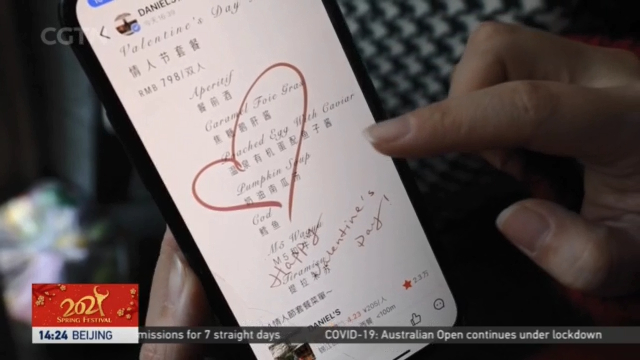 CGTN
DANIEL'S
Valentine's Day
情人节套餐
RMB 798/双人
Aperitif
餐前酒
Caramel Foie Gras
焦糖鹅肝酱
Poached Egg With Caviar
温泉有机蛋配鱼子酱
Pumpkin Soup
奶油南瓜汤
Cod
鳕鱼
M5
Tiramisu
提拉米苏
Happy
Valentine's
Day!
情人節套餐菜單~
DANIEL'S
4.23 ¥205/人
2.3万
2021
SPRING FESTIVAL
14:24 BEIJING
missions for 7 straight days COVID-19: Australian Open continues under lockdown